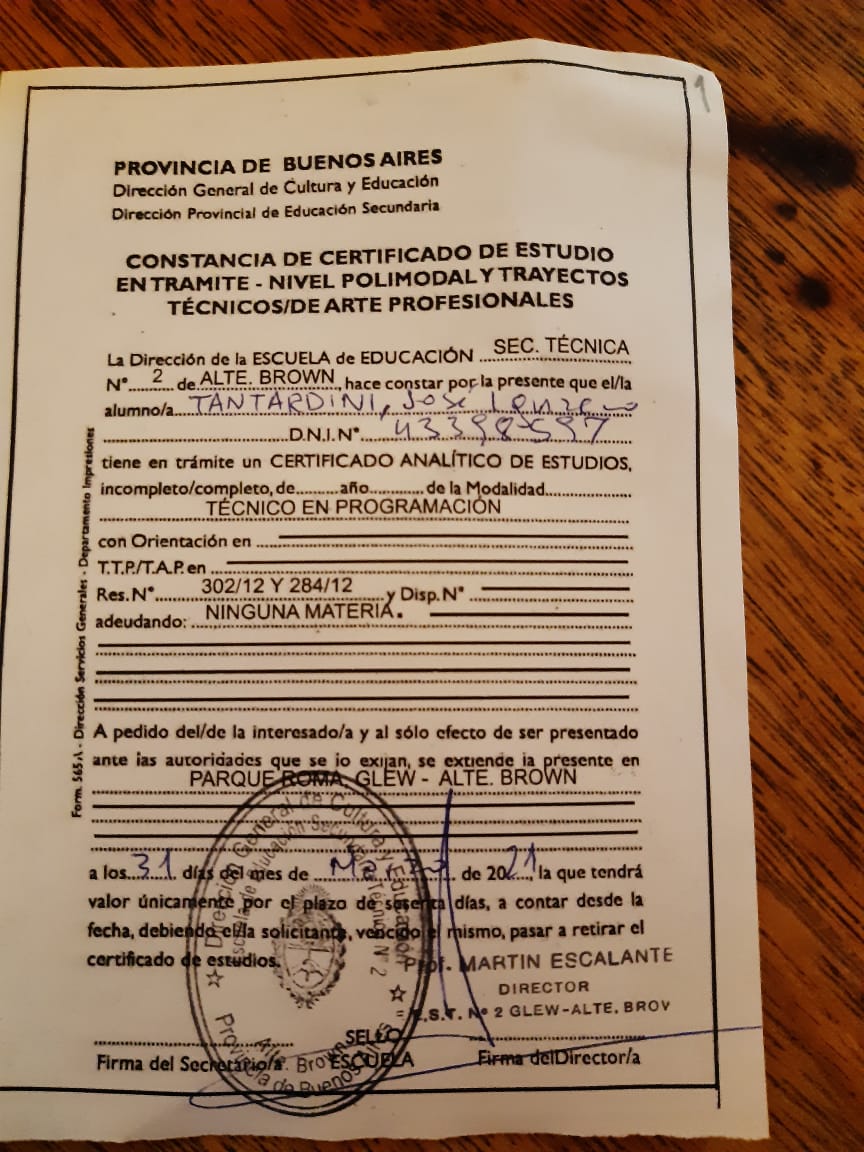 1
PROVINCIA DE BUENOS AIRES
Dirección General de Cultura y Educación
Dirección Provincial de Educación Secundaria
CONSTANCIA DE CERTIFICADO DE ESTUDIO
EN TRAMITE - NIVEL POLIMODAL Y TRAYECTOS
TÉCNICOS/DE ARTE PROFESIONALES
La Dirección de la ESCUELA de EDUCACIÓN SEC. TÉCNICA
N° 2 de ALTE. BROWN, hace constar por la presente que el/la
alumno/a TANTARDINI, José
D.N.I. N° 43398597
tiene en trámite un CERTIFICADO ANALÍTICO DE ESTUDIOS,
incompleto/completo, de........año...........de la Modalidad................
TÉCNICO EN PROGRAMACIÓN
con Orientación en
T.T.P./T.A.P. en
Res. N° 302/12 Y 284/12 y Disp. N°
adeudando: NINGUNA MATERIA.
A pedido del/de la interesado/a y al sólo efecto de ser presentado
ante las autoridades que se lo exijan, se extiende la presente en
PARQUE ROMA, GLEW - ALTE. BROWN
a los 31 días del mes de Marzo de 2021, la que tendrá
valor únicamente por el plazo de sesenta días, a contar desde la
fecha, debiendo el/la solicitante, vencido el mismo, pasar a retirar el
certificado de estudios.
Prof. MARTIN ESCALANTE
DIRECTOR
E.S.T. N° 2 GLEW-ALTE. BROW
SELLO
Firma del Secretario/a ESCUELA Firma del Director/a
Form. 565 A - Dirección Servicios Generales - Departamento Impresiones
Dirección General de Cultura y Educación
Escuela de Educación Secundaria Técnica N° 2
Alte. Brown
Provincia de Buenos Aires